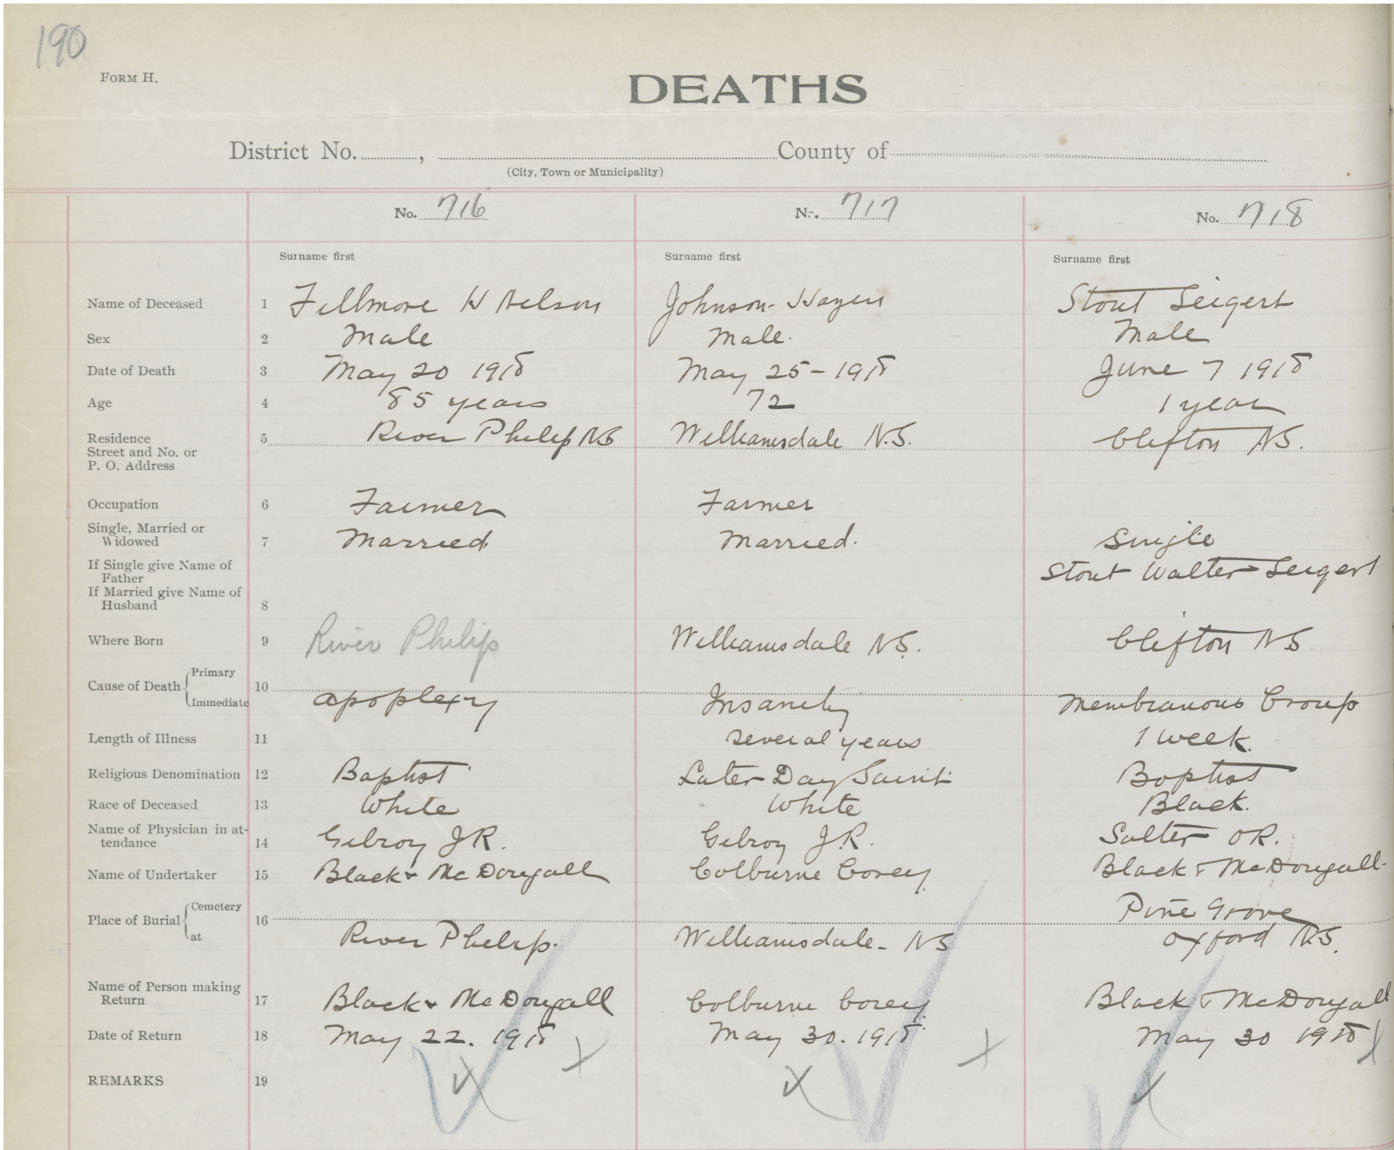 190
FORM H.
DEATHS
District No. , County of
(City, Town or Municipality)
No. 716 No. 717 No. 718
Surname first Surname first Surname first
Name of Deceased 1 Fillmore W Nelson Johnson Hazen Stout Seigert
Sex 2 Male Male. Male
Date of Death 3 May 20 1918 May 25-1918 June 7 1918
Age 4 85 years 72 1 year
Residence 5 River Philip NS Williamsdale N.S. Clifton NS.
Street and No. or
P. O. Address
Occupation 6 Farmer Farmer
Single, Married or
Widowed 7 Married Married. Single
If Single give Name of Stout Walter Seigert
Father
If Married give Name of
Husband 8
Where Born 9 River Philip Williamsdale NS. Clifton NS
Primary
Cause of Death 10
Immediate apoplexy Insanity Membranous Croup
Length of Illness 11 Several years 1 week.
Religious Denomination 12 Baptist Later Day Saint Baptist
Race of Deceased 13 White White Black.
Name of Physician in at-
tendance 14 Gilroy J R. Gilroy J R. Salter O R.
Name of Undertaker 15 Black & McDougall Colburne Corey Black & McDougall
Cemetery Pine Grove
Place of Burial 16
at River Philip. Williamsdale - NS Oxford N.S.
Name of Person making
Return 17 Black & McDougall Colburne Corey Black & McDougall
Date of Return 18 May 22. 1918 May 30. 1918 May 30 1918
REMARKS 19